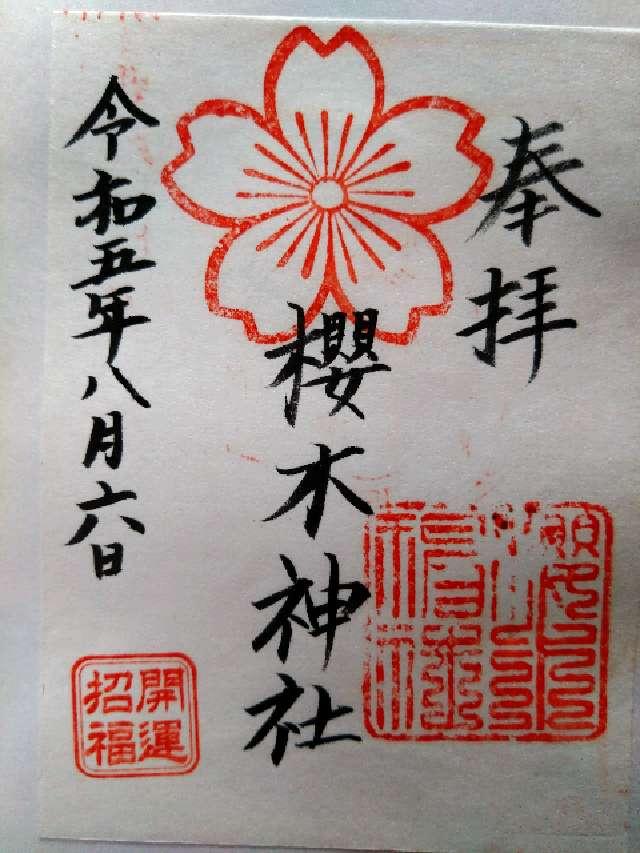 奉拝
櫻木神社
令和五年八月六日
開運
招福